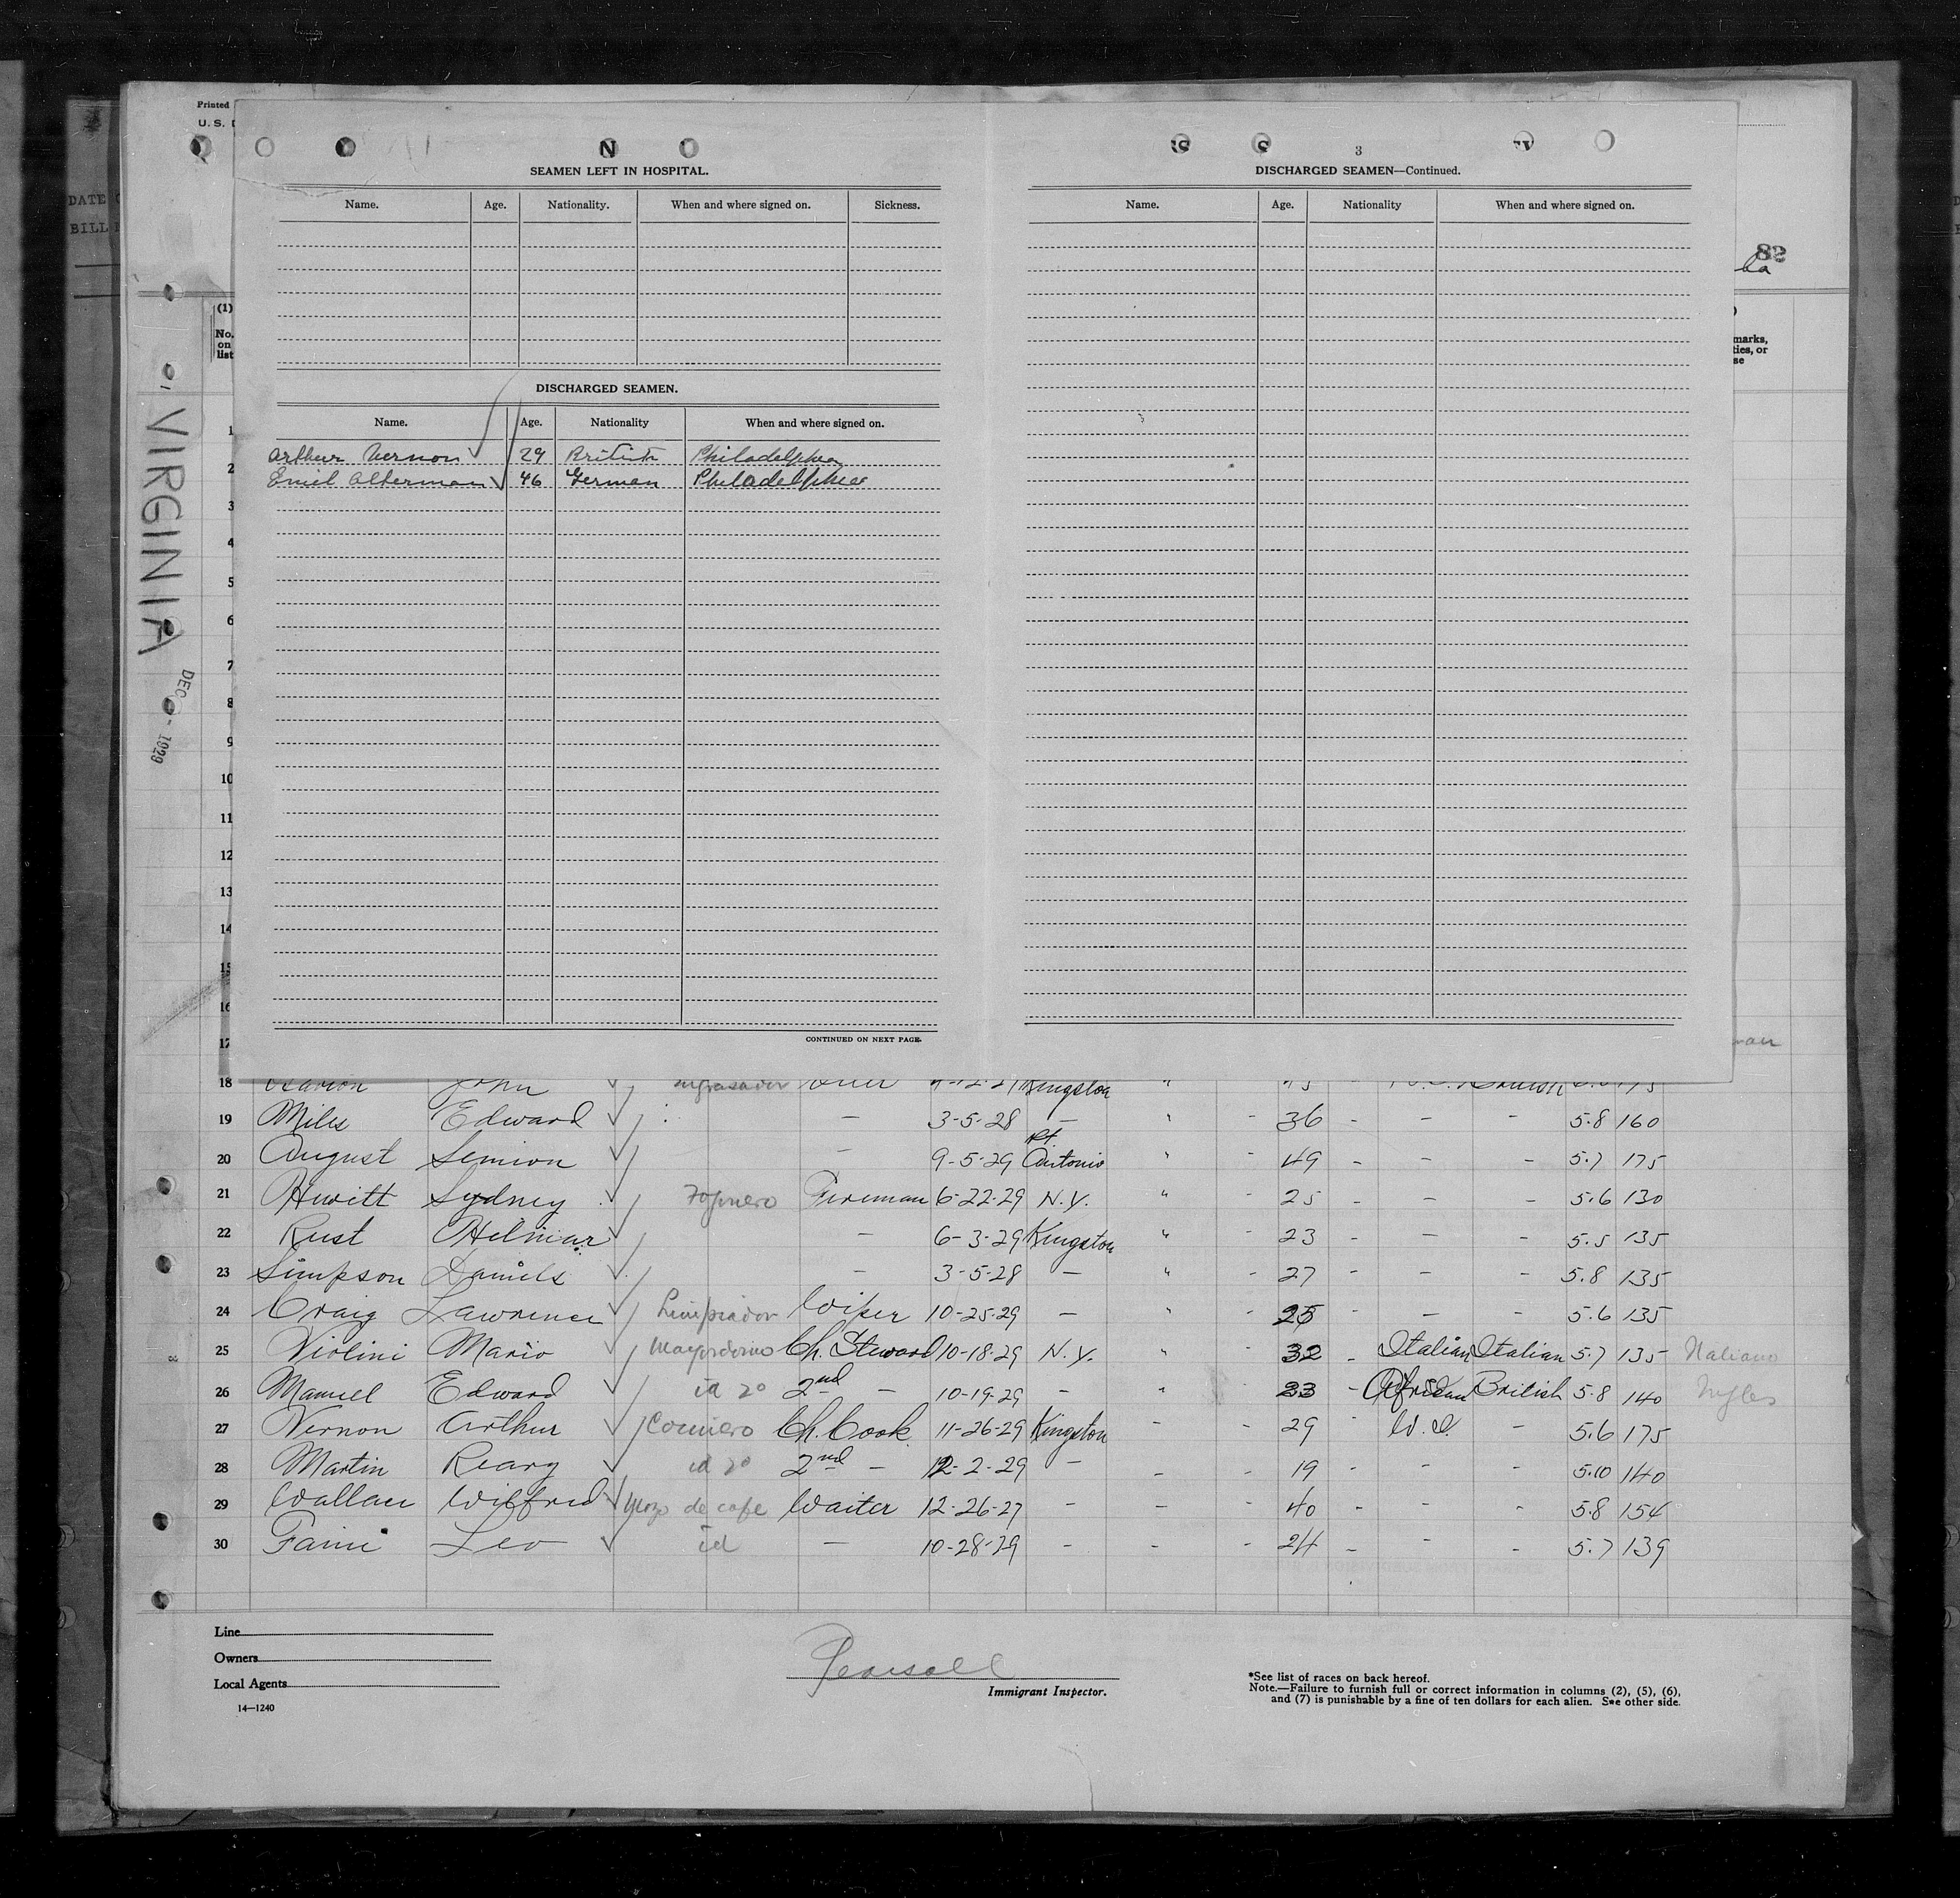 Printed
U. S.
DATE
BILL
N
3
SEAMEN LEFT IN HOSPITAL.
DISCHARGED SEAMEN—Continued.
Name. Age. Nationality. When and where signed on. Sickness.
Name. Age. Nationality When and where signed on.
82
(1)
No. on list
marks,
ties, or
se
VIRGINIA
DEC - 1929
DISCHARGED SEAMEN.
Name. Age. Nationality When and where signed on.
Arthur Vernon 29 British Philadelphia
Emil Alterman 46 German Philadelphia
1
2
3
4
5
6
7
8
9
10
11
12
13
14
15
16
17
CONTINUED ON NEXT PAGE.
18 John Engrasador Oiler Kingston "
19 Miles Edward — 3-5-28 — " - 36 - - - 5.8 160
20 August Simion — 9-5-29 Pt. Antonio " - 49 - - - 5.7 175
21 Hewitt Sydney Fogonero Fireman 6-22-29 N.Y. " - 25 - - - 5.6 130
22 Rust Hilmar — 6-3-29 Kingston " - 23 - - - 5.5 135
23 Simpson Daniels — 3-5-28 — " - 27 - - - 5.8 135
24 Craig Lawrence Limpiador Wiper 10-25-29 — " - 25 - - - 5.6 135
25 Violini Mario Mayordomo Ch. Steward 10-18-29 N.Y. " - 32 - Italian Italian 5.7 135 Italiano
26 Manuel Edward id 2º 2nd — 10-19-29 — " - 23 - African British 5.8 140 Ingles
27 Vernon Arthur Cocinero Ch. Cook 11-26-29 Kingston - - 29 - W.I. - 5.6 175
28 Martin Reary id 2º 2nd — 12-2-29 - - - 19 - - - 5.10 140
29 Wallace Wilfred Mozo de cafe Waiter 12-26-27 - - - 40 - - - 5.8 154
30 Leo id — 10-28-29 - - - 24 - - - 5.7 139
Line
Owners
Local Agents
14—1240
Pearsall
Immigrant Inspector.
*See list of races on back hereof.
Note.—Failure to furnish full or correct information in columns (2), (5), (6),
and (7) is punishable by a fine of ten dollars for each alien. See other side.